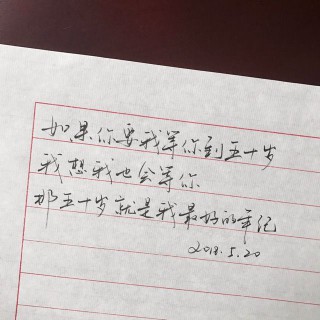 如果你要我等你到五十岁
我想我也会等你
那五十岁就是我最好的年纪
2018.5.20